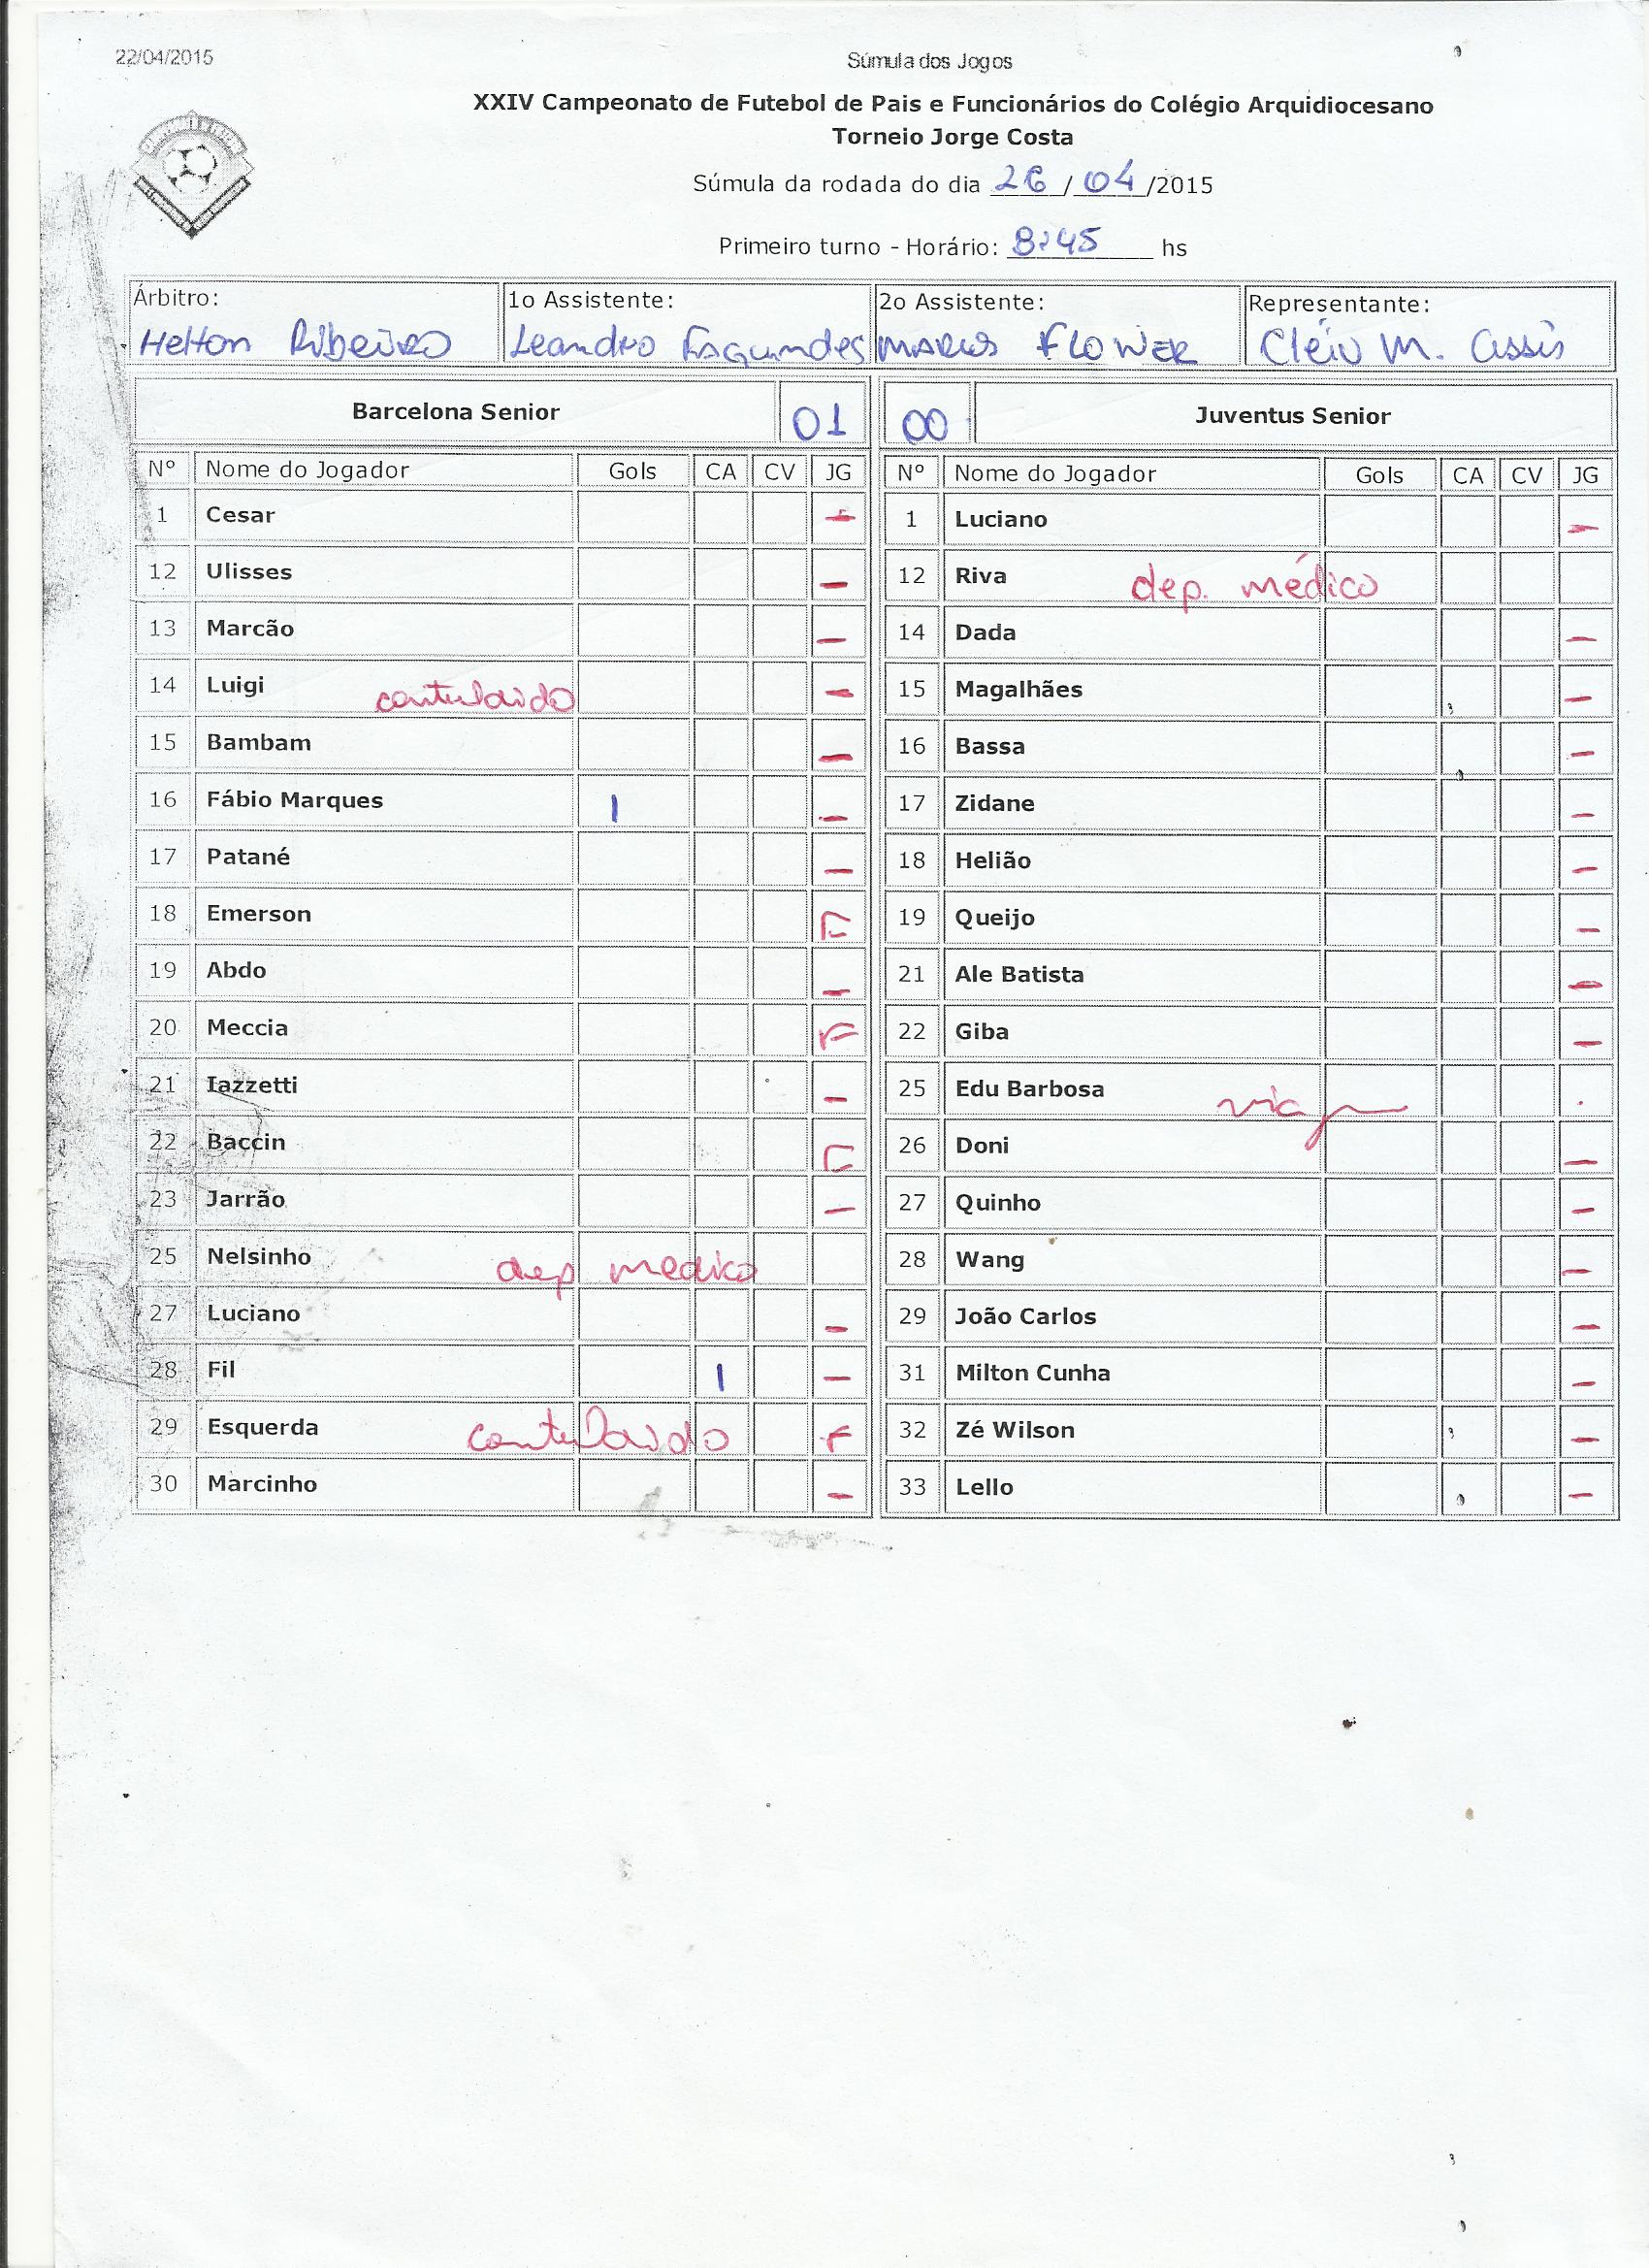 22/04/2015 Súmula dos Jogos
XXIV Campeonato de Futebol de Pais e Funcionários do Colégio Arquidiocesano
Torneio Jorge Costa
Súmula da rodada do dia 26/04/2015
Primeiro turno - Horário: 8:45 hs
Árbitro: 1o Assistente: 2o Assistente: Representante:
Helton Ribeiro Leandro Fagundes Marcus Flower M. Assis
Barcelona Senior 01 00 Juventus Senior
Nº Nome do Jogador Gols CA CV JG Nº Nome do Jogador Gols CA CV JG
1 Cesar - 1 Luciano -
12 Ulisses - 12 Riva dep. médico
13 Marcão - 14 Dada -
14 Luigi - 15 Magalhães -
15 Bambam - 16 Bassa -
16 Fábio Marques 1 - 17 Zidane -
17 Patané - 18 Helião -
18 Emerson F 19 Queijo -
19 Abdo - 21 Ale Batista -
20 Meccia F 22 Giba -
21 Iazzetti - 25 Edu Barbosa
22 Baccin 26 Doni -
23 Jarrão - 27 Quinho -
25 Nelsinho dep medico 28 Wang -
27 Luciano - 29 João Carlos -
28 Fil 1 - 31 Milton Cunha -
29 Esquerda F 32 Zé Wilson -
30 Marcinho - 33 Lello -